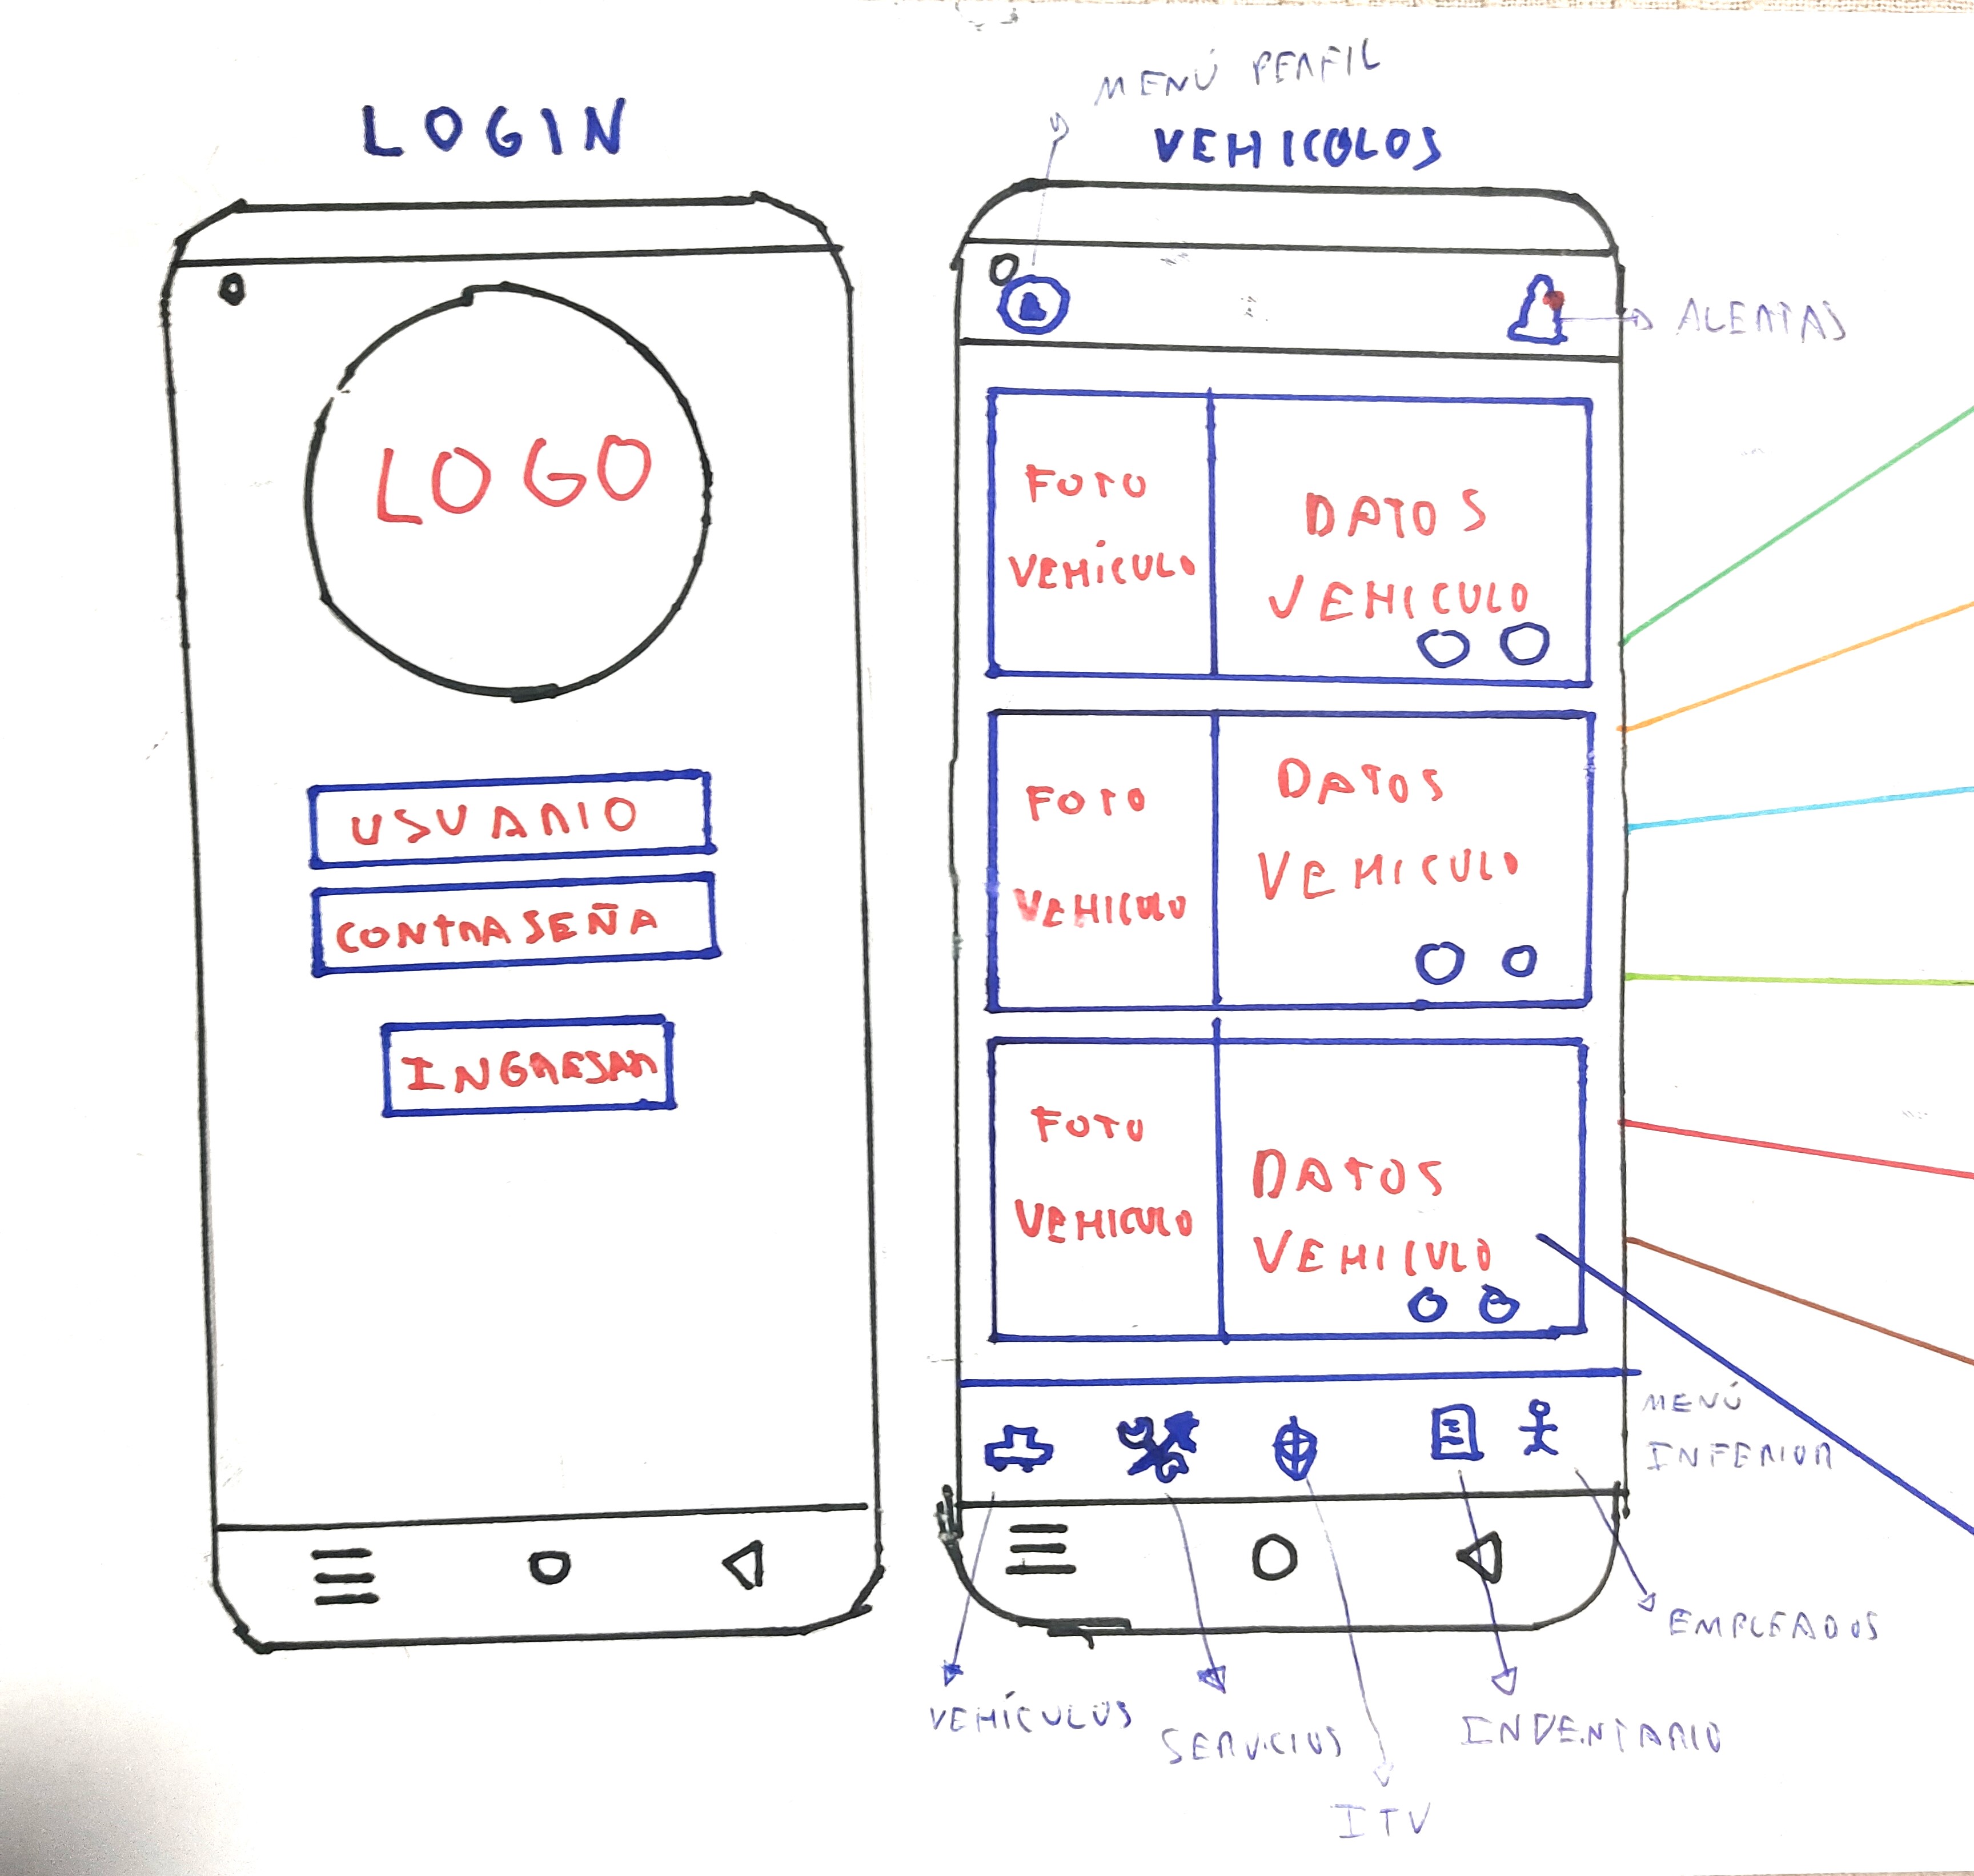 LOGIN
LOGO
USUARIO
CONTRASEÑA
INGRESAR
MENÚ PERFIL
VEHICULOS
ALERTAS
FOTO
VEHÍCULO
DATOS
VEHICULO
FOTO
VEHICULO
DATOS
VEHICULO
FOTO
VEHICULO
DATOS
VEHICULO
MENÚ
INFERIOR
EMPLEADOS
VEHÍCULOS
SERVICIOS
INVENTARIO
ITV